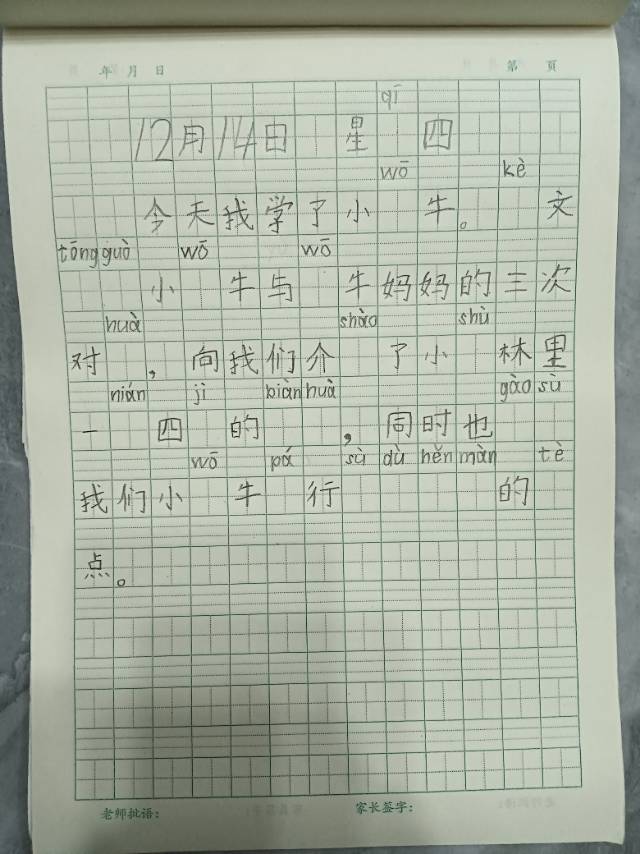 年 月 日 第 页
qī
12月14日 星 四
wō kè
今天我学了小 牛。 文
tōng guò wō wō
小 牛与 牛妈妈的三次
huà shào shù
对 ，向我们介 了小 林里
nián jì biàn huà gào sù
一 四 的 ，同时也
wō pá sù dù hěn màn tè
我们小 牛 行 的
点。
老师批语： 家长签字：